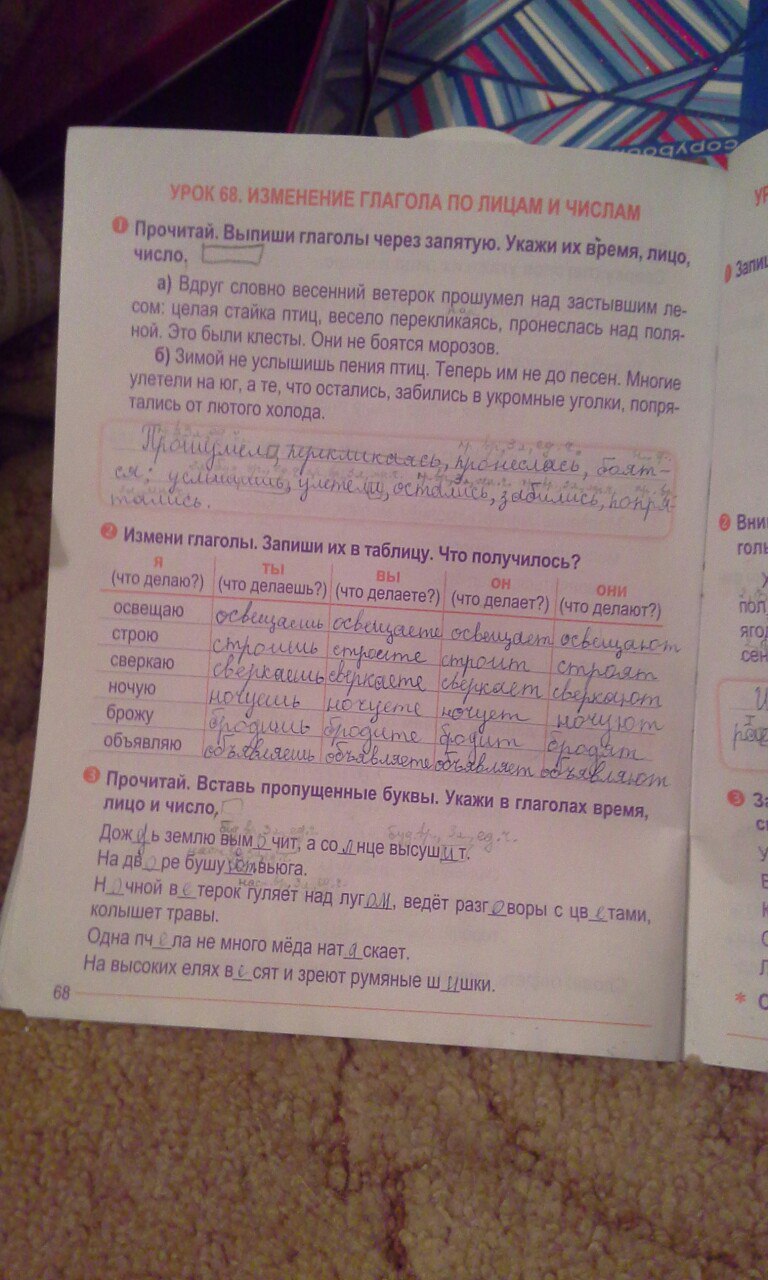 copybook
УРОК 68. ИЗМЕНЕНИЕ ГЛАГОЛА ПО ЛИЦАМ И ЧИСЛАМ
1 Прочитай. Выпиши глаголы через запятую. Укажи их время, лицо,
число.
а) Вдруг словно весенний ветерок прошумел над застывшим ле-
сом: целая стайка птиц, весело перекликаясь, пронеслась над поля-
ной. Это были клесты. Они не боятся морозов.
б) Зимой не услышишь пения птиц. Теперь им не до песен. Многие
улетели на юг, а те, что остались, забились в укромные уголки, попря-
тались от лютого холода.
Прошумел, перекликаясь, пронеслась, боят-
ся; услышишь, улетели, остались, забились, попря-
тались.
2 Измени глаголы. Запиши их в таблицу. Что получилось?
Я ТЫ ВЫ ОН ОНИ
(что делаю?) (что делаешь?) (что делаете?) (что делает?) (что делают?)
освещаю освещаешь освещаете освещает освещают
строю строишь строите строит строят
сверкаю сверкаешь сверкаете сверкает сверкают
ночую ночуешь ночуете ночует ночуют
брожу бродишь бродите бродит бродят
объявляю объявляешь объявляете объявляет объявляют
3 Прочитай. Вставь пропущенные буквы. Укажи в глаголах время,
лицо и число.
буд.вр., 3л., ед.ч. буд.вр., 3л., ед.ч.
Дождь землю вымочит, а солнце высушит.
На дворе бушует вьюга.
Ночной ветерок гуляет над лугом, ведёт разговоры с цветами,
колышет травы.
Одна пчела не много мёда натаскает.
На высоких елях весят и зреют румяные шишки.
68